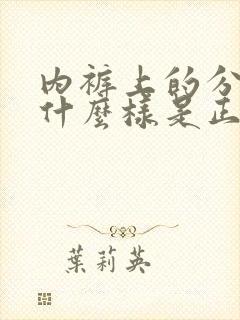 內褲上的分
什麼樣是正
葉莉英